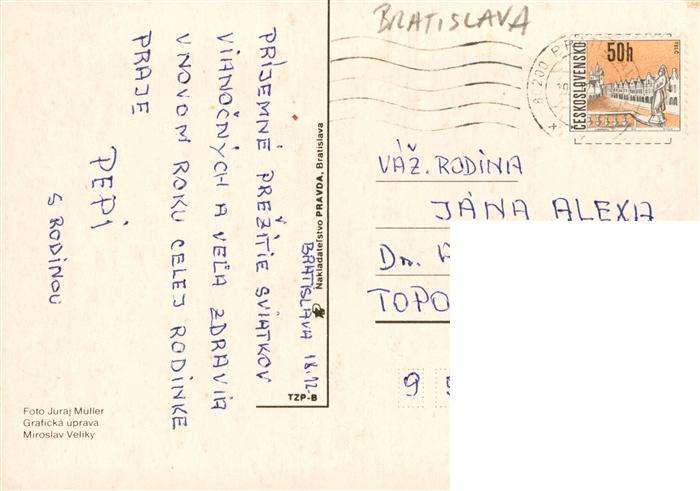 BRATISLAVA
8 200 PR
ČESKOSLOVENSKO
50h
VÁŽ. RODINA
JÁNA ALEXA
Dr.
TOPO
9
BRATISLAVA 18.12.
PRÍJEMNÉ PREŽITIE SVIATKOV
VIANOČNÝCH A VEĽA ZDRAVIA
V NOVOM ROKU CELEJ RODINKE
PRAJE
PEPI
S RODINOU
Nakladateľstvo PRAVDA, Bratislava
TZP-B
Foto Juraj Müller
Grafická úprava
Miroslav Veliky